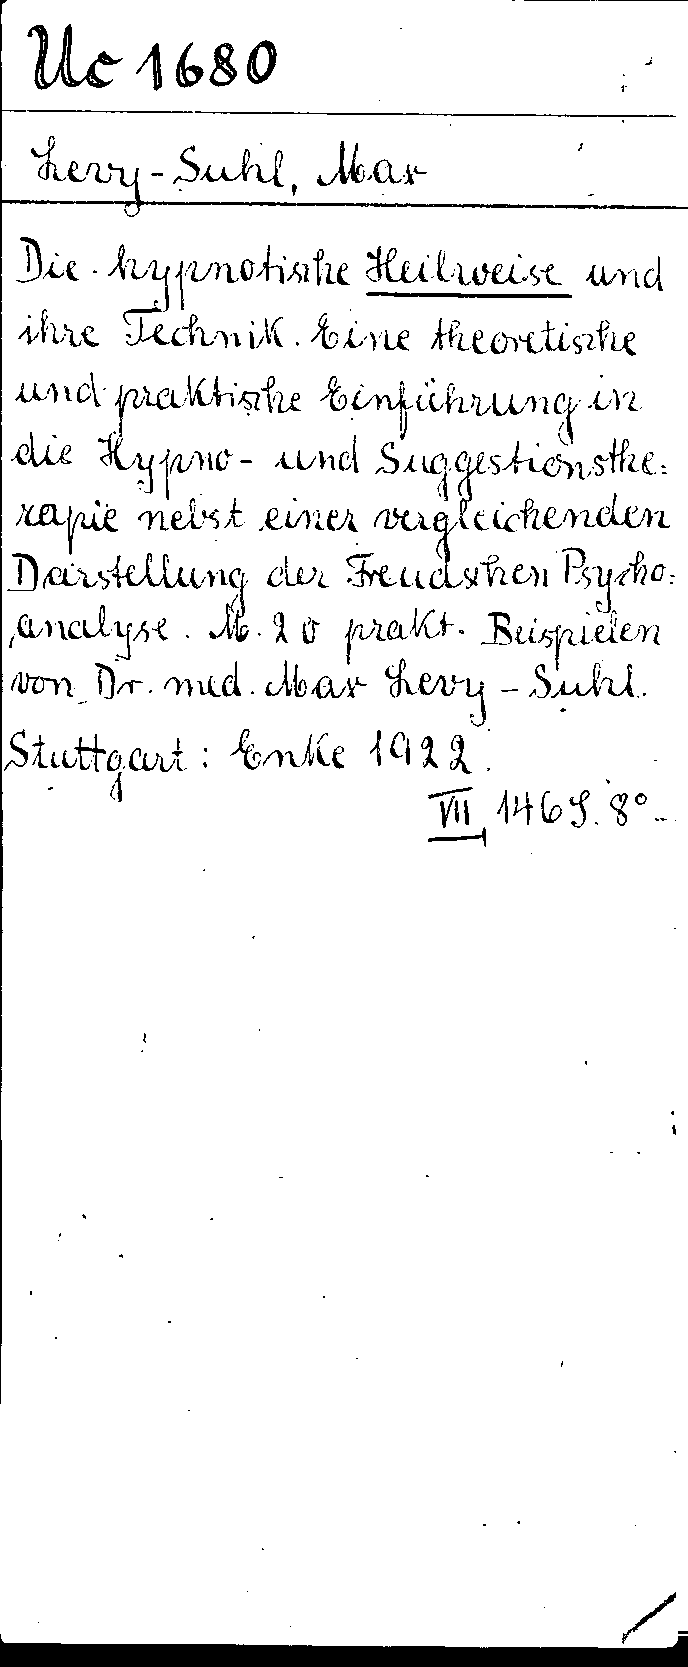 Uc 1680
Levy-Suhl, Max
Die hypnotische Heilweise und
ihre Technik. Eine theoretische
und praktische Einführung in
die Hypno- und Suggestionsthe=
rapie nebst einer vergleichenden
Darstellung der Freudschen Psycho=
analyse. M. 20 prakt. Beispielen
von Dr. med. Max Levy-Suhl.
Stuttgart: Enke 1922.
VII, 146 S. 8°